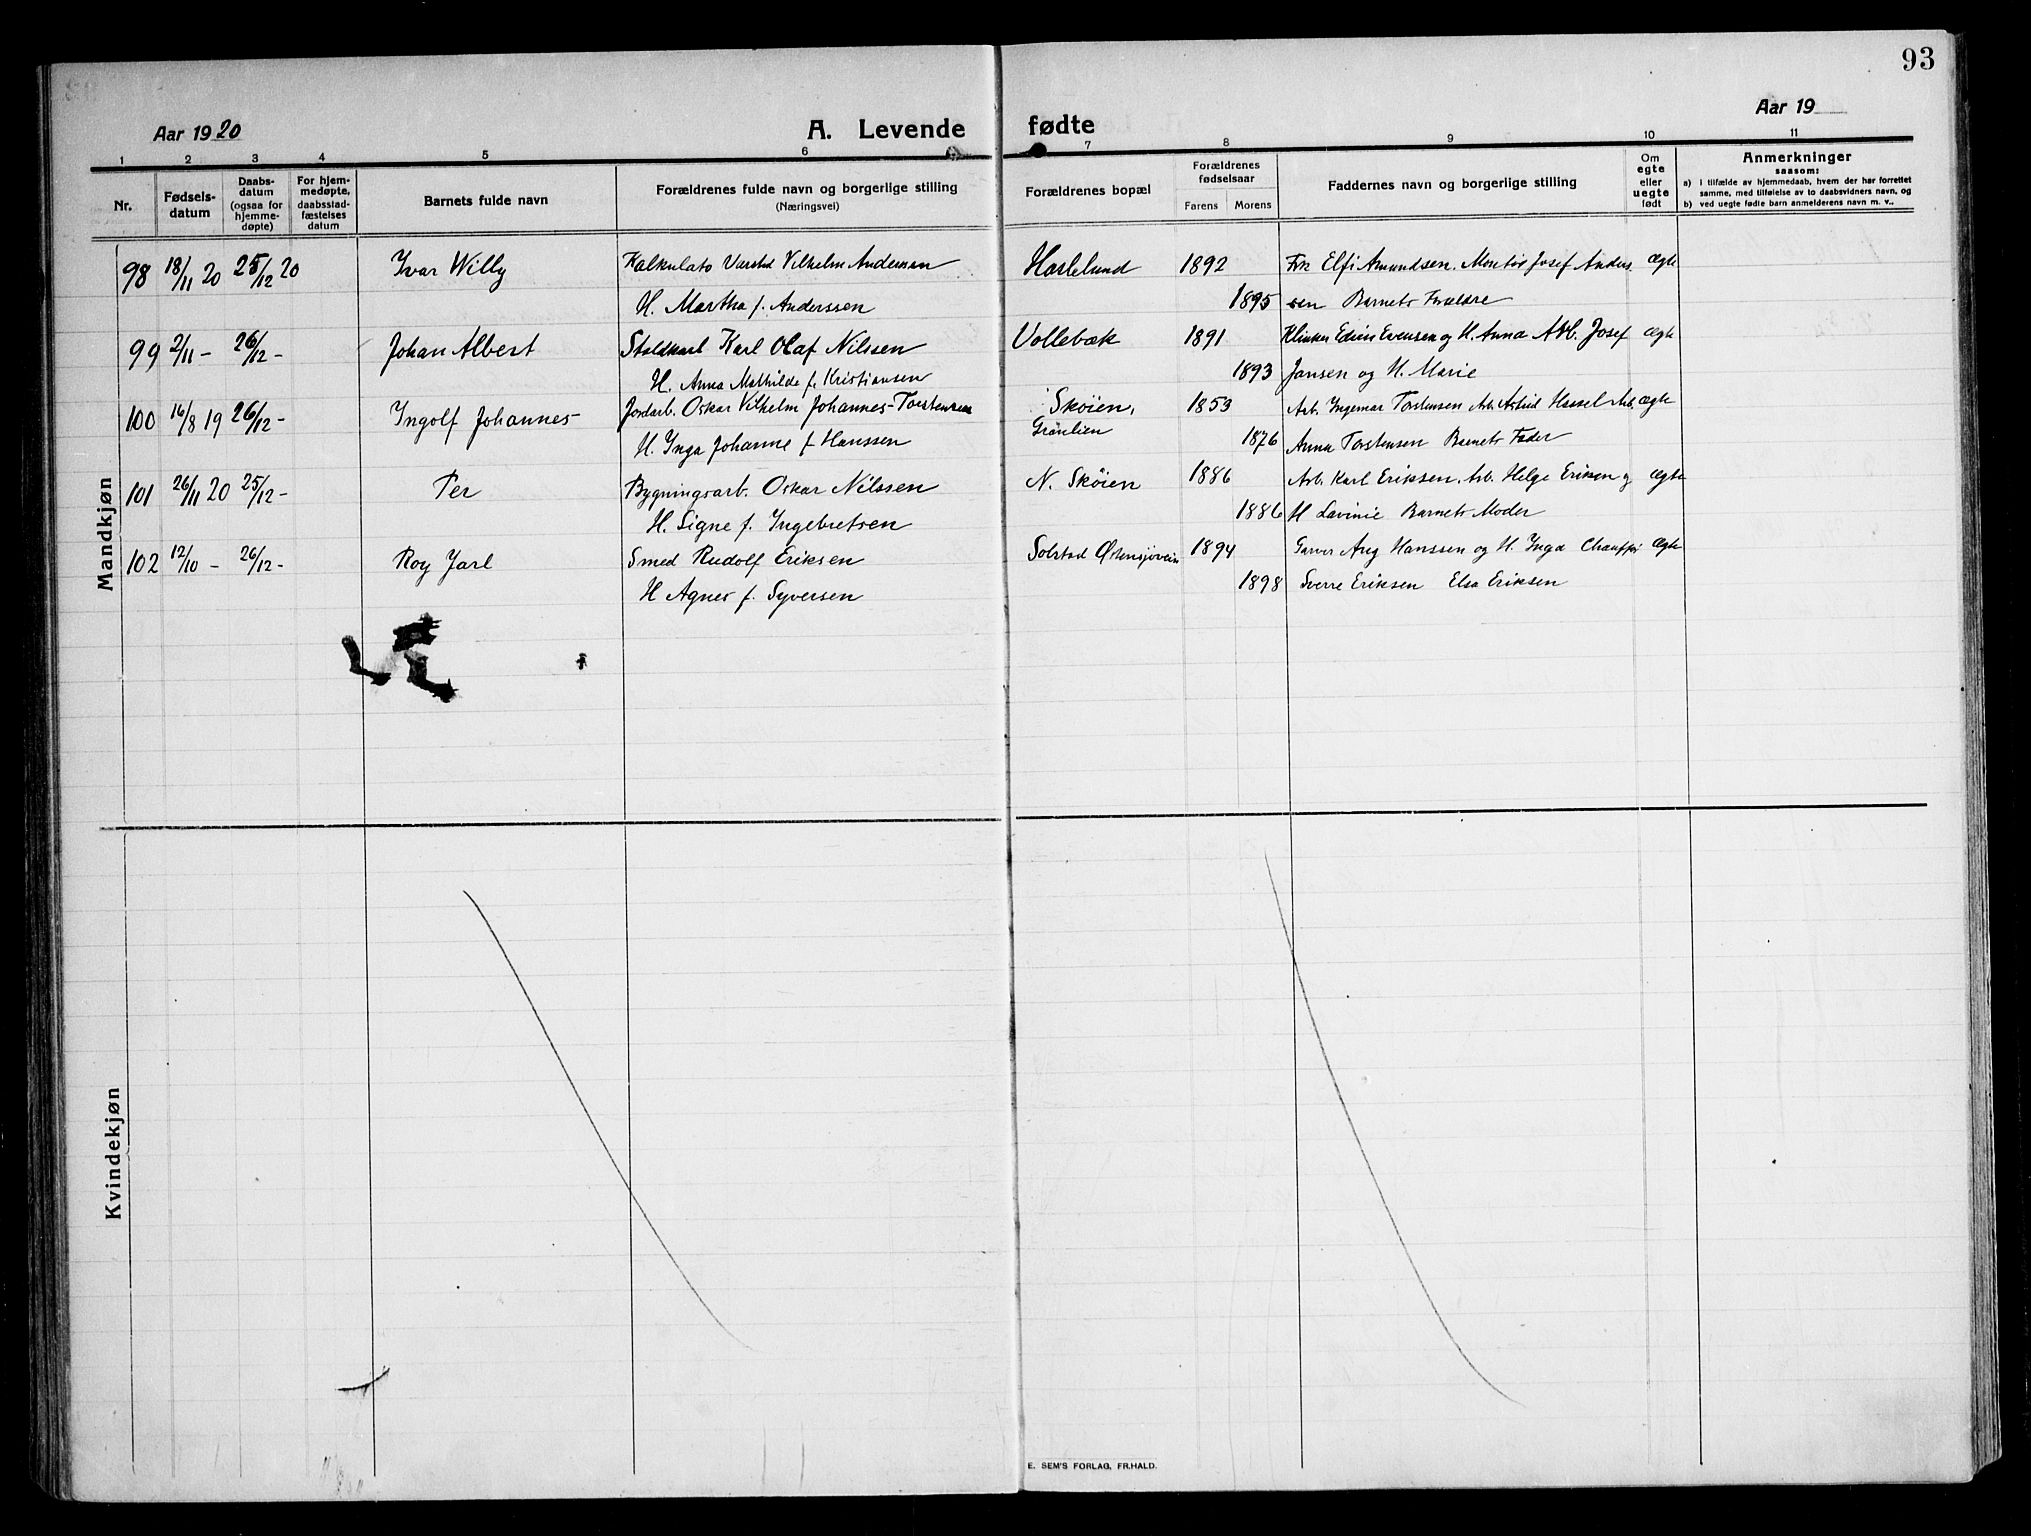 93
Aar 1920
A. Levende fødte
Aar 19
1 2 3 4 5 6 7 8 9 10 11
Nr.
Fødsels-
datum
Daabs-
datum
(ogsaa for
hjemme-
døpte)
For hjem-
medøpte,
daabsstad-
fæstelses
datum
Barnets fulde navn
Forældrenes fulde navn og borgerlige stilling
(Næringsvei)
Forældrenes bopæl
Forældrenes
fødselsaar
Farens Morens
Faddernes navn og borgerlige stilling
Om
egte
eller
uegte
født
Anmerkninger
saasom:
a) I tilfælde av hjemmedaab, hvem der har forrettet
samme, med tilføielse av to daabsvidners navn, og
b) ved uegte fødte barn anmelderens navn m. v..
Mandkjøn
98 18/11 20 25/12 20 Ivar Willy Kalkulatø Varstad Vilhelm Andersen Haslelund 1892 Frk Elfi Amundsen. Montør Josef Anders ægte
H. Martha f. Anderssen 1895 sen Barnets Forældre
99 2/11 - 26/12 - Johan Albert Staldkarl Karl Olaf Nilssen Vollebæk 1891 Edvin Evensen og H. Anna Arb. Josef ægte
H. Anna Mathilde f. Kristiansen 1893 Jansen og H. Marie
100 16/8 19 26/12 - Ingolf Johannes - Jordarb. Oskar Vilhelm Johannes - Torstensen Skøien, 1853 Arb. Ingemar Torstensen Arb. Astrid Hassel Arb. ægte
Grønlien
H. Inga Johanne f Hanssen 1876 Anna Torstensen Barnets Fader
101 26/11 20 25/12 - Per Bygningsarb. Oskar Nilssen N. Skøien 1886 Arb. Karl Eriksen. Arb. Helge Eriksen og ægte
H. Signe f. Ingebretsen 1886 H Lavinie Barnets Moder
102 12/10 - 26/12 - Roy Jarl Smed Rudolf Eriksen Solstad Østensjøvein 1894 Garver Aug Hanssen og H. Inga Chauffør ægte
H Agnes f. Syversen 1898 Sverre Eriksen Elsa Eriksen
Kvindekjøn
E. SEM'S FORLAG, FR.HALD.